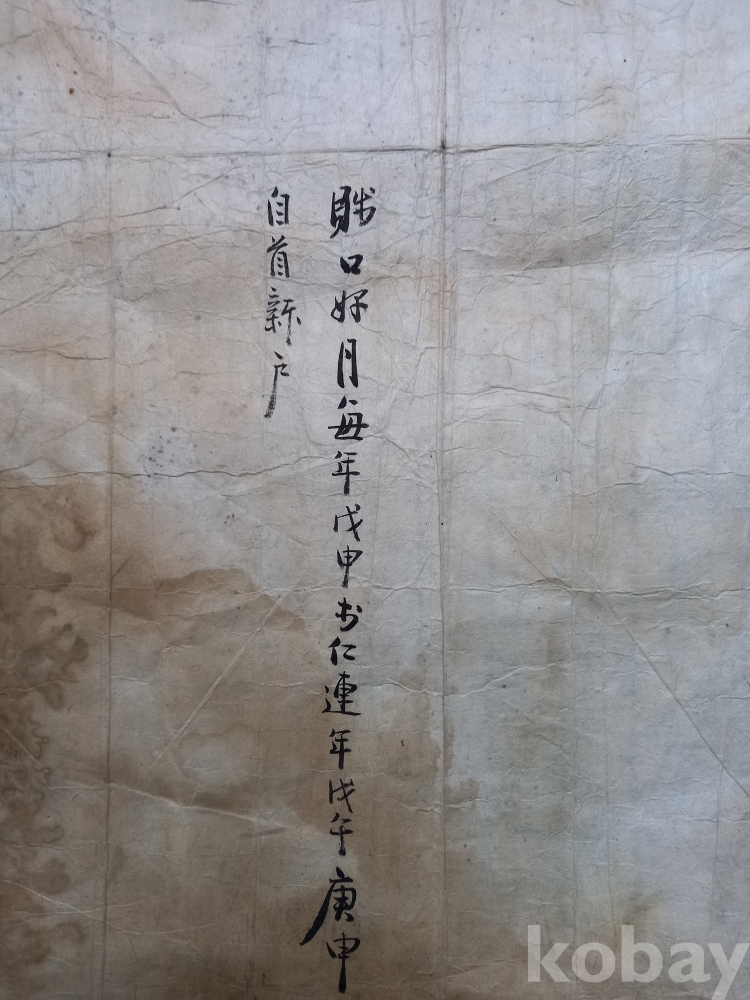 賎口好月每年戊申仁連年戊午庚申
自首新戶
kobay